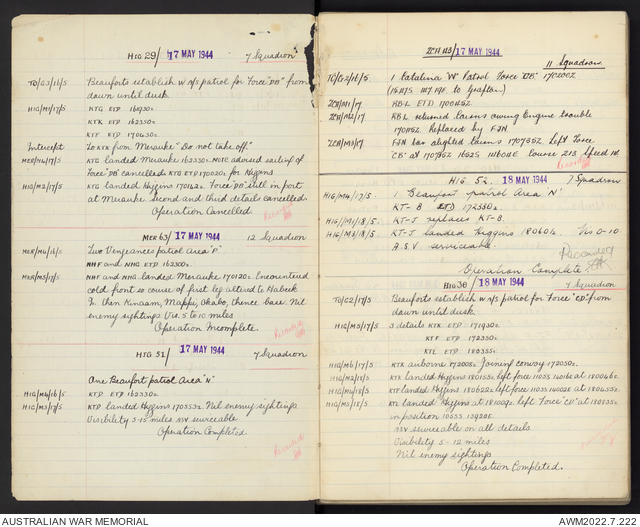 HIG 29/ 17 MAY 1944 7 Squadron
TO/G3/16/5 Beauforts establish w n/s patrol for Force "DB" from
dawn until dusk.
HIG/M1/17/5 KTG ETD
KTK ETD 162350z
KTF ETD 170430z
Intercept To KTK from Merauke "Do not take off."
MER/M4/17/5 KTG landed Merauke 162330z. MOTE advised sailing of
Force "DB" cancelled. KTG ETD 170020z for Higgins
HIG/M2/17/5 KTG landed Higgins 170142z. Force "DB" still in port
at Merauke. Second and third details cancelled.
Operation Cancelled.
Recorded
MER 63/ 17 MAY 1944 12 Squadron
MER/M6/16/5 Two Vengeances patrol area "P"
NHF and NHG ETD 162300z.
MER/M5/17/5 NHF and NHG landed Merauke 170120z. Encountered
cold front on course of first leg altered to Habeck
Is then Kinaam, Mappi, Okabo, thence base. Nil
enemy sightings. Vis. 5 to 10 miles
Operation Incomplete.
Recorded
HIG 51/ 17 MAY 1944 7 Squadron
One Beaufort patrol area "N"
HIG/M4/16/5 KTD ETD 162330z.
HIG/M3/17/5 KTD landed Higgins 170353z. Nil enemy sightings
Visibility 5-15 miles ASV serviceable.
Operation Completed.
Recorded
ZCH 113/ 17 MAY 1944 11 Squadron
TO/G2/16/5 1 Catalina "W" Patrol Force "CB" 170200z
to Grafton)
ZCH/M1/17 RBL ETD 170045z
ZCH/M2/17 RBL returned Cairns owing Engine trouble
170115z Replaced by FJN.
ZCH/M3/17 FJN has alighted Cairns 170735z Left Force
"CB" at course 215 Speed
Recorded
HIG 52. 18 MAY 1944 7 Squadron
HIG/M4/17/5. 1 Beaufort patrol Area 'N'
KT-B ETD 172330z
HIG/M1/18/5. KT-J replaces KT-B.
HIG/M3/18/5 KT-J landed Higgins 180604. Vis 0-10
A.S.V. serviceable.
Operation Complete.
Recorded
HIG 30/ 18 MAY 1944 7 Squadron
TO/G2/17/5 Beauforts establish w n/s patrol for Force "CD" from
dawn until dusk.
HIG/M5/17/5 3 details KTK ETD 171930z
KTF ETD 172330z
KTL ETD 180355z
HIG/M6/17/5 KTK airborne 172008z Joining convoy 172030z.
HIG/M2/18/5 KTK landed Higgins left force at 180046z
HIG/M4/18/5 KTF landed Higgins 180622z left force at 180455z
HIG/M5/18/5 KTL landed Higgins at 181009z left Force "CD" at 180835z
in position 1053S 13920E
ASV serviceable on all details
Visibility 5-12 miles
Nil enemy sightings
Operation Completed.
AUSTRALIAN WAR MEMORIAL AWM2022.7.222